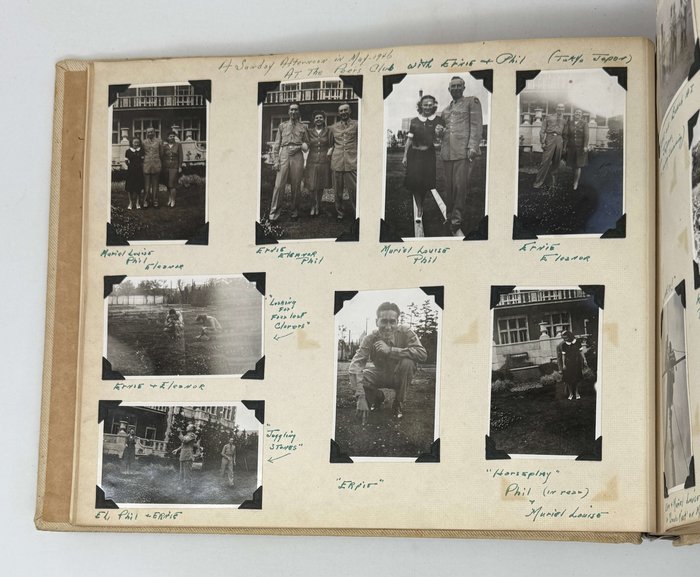 A Sunday Afternoon in May-1946
At The Peers Club with Ernie + Phil (Tokyo Japan)
Muriel Louise
Phil
Eleanor
Ernie
Eleanor
Phil
Muriel Louise
Phil
Ernie
Eleanor
"Looking
For
Four leaf
Clovers"
Ernie + Eleanor
"Juggling
Stones"
El, Phil + Ernie
"Ernie"
"Horseplay"
Phil (in rear)
+
Muriel Louise